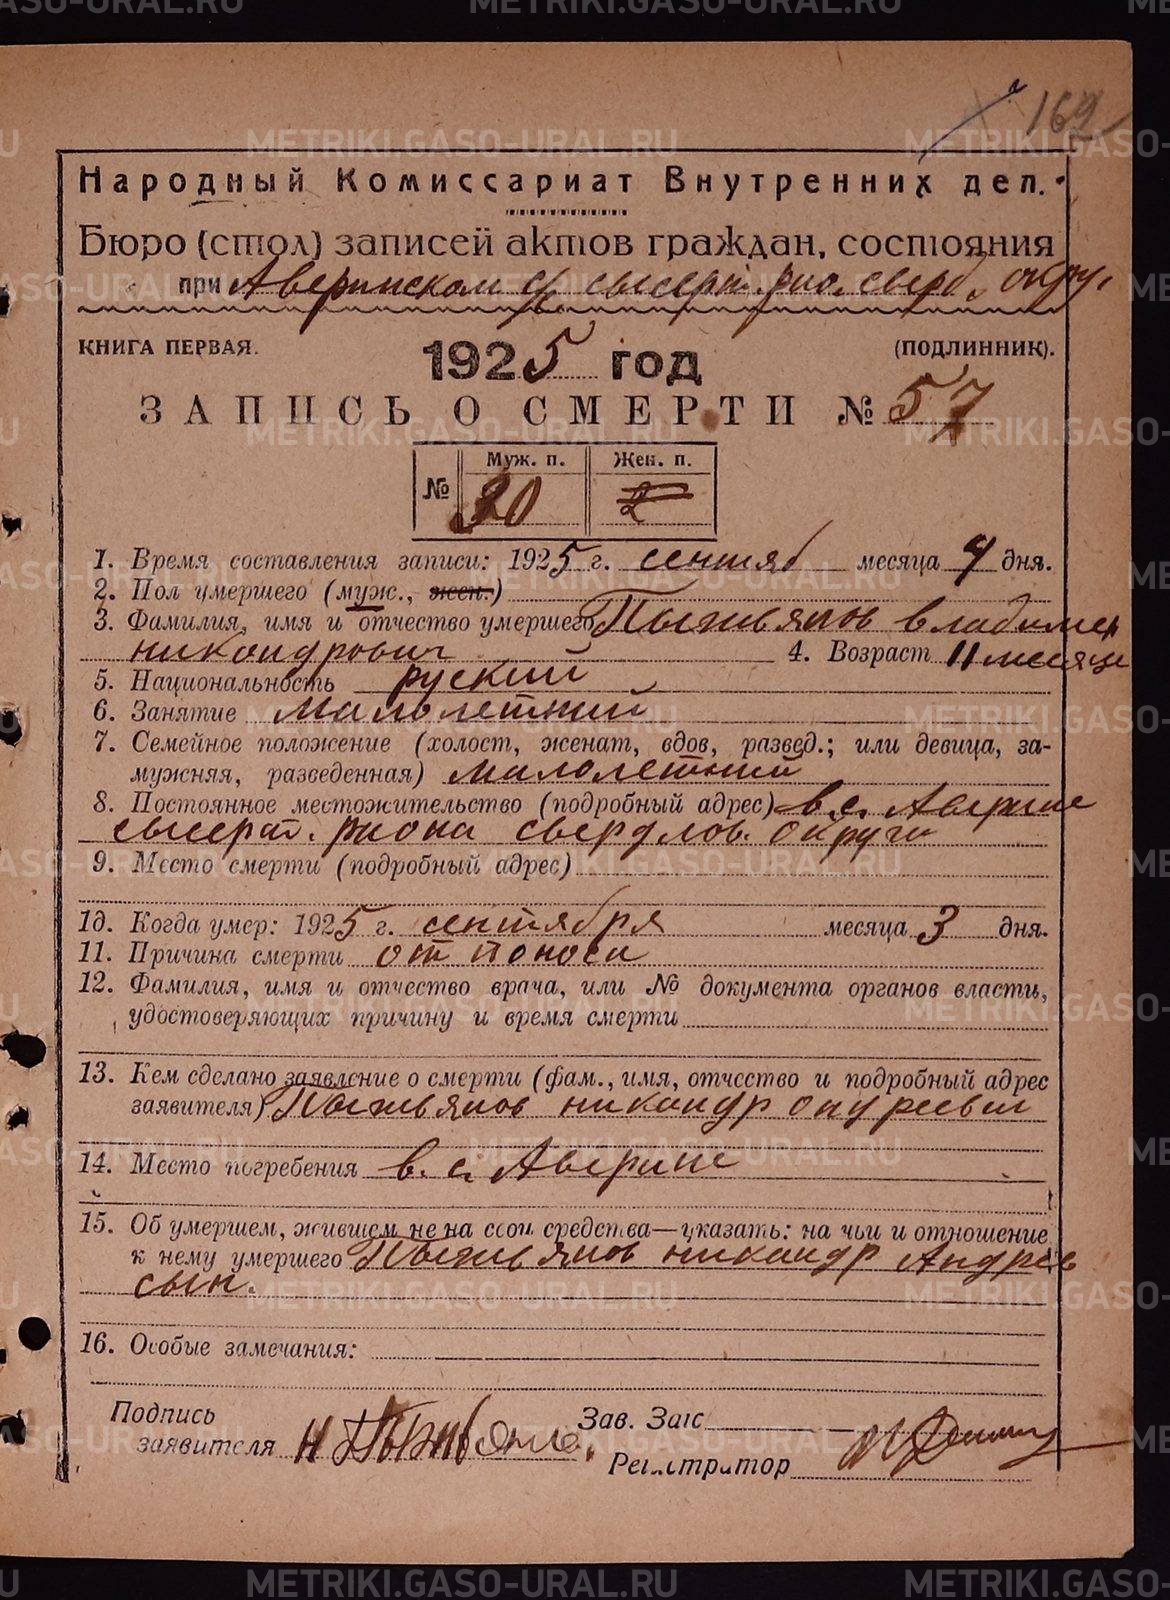 169
Народный Комиссариат Внутренних дел.
Бюро (стол) записей актов граждан, состояния
при Аверинском с/с сысерт. рио. сверд. окру.
КНИГА ПЕРВАЯ. 1925 год (ПОДЛИННИК).
ЗАПИСЬ О СМЕРТИ № 57
№ Муж. п. Жен. п.
30 2
1. Время составления записи: 1925 г. сентяб месяца 4 дня.
2. Пол умершего (муж., жен.)
3. Фамилия, имя и отчество умершего Пыжьянов владимер
никондрович 4. Возраст 11 месяце
5. Национальность руский
6. Занятие малолетний
7. Семейное положение (холост, женат, вдов, развед.; или девица, за-
мужняя, разведенная) малолетний
8. Постоянное местожительство (подробный адрес) в с. Аверине
сысерт. риона свердлов. округи
9. Место смерти (подробный адрес)
10. Когда умер: 1925 г. сентября месяца 3 дня.
11. Причина смерти от поноса
12. Фамилия, имя и отчество врача, или № документа органов власти,
удостоверяющих причину и время смерти
13. Кем сделано заявление о смерти (фам., имя, отчество и подробный адрес
заявителя) Пыжьянов никондр ондреевич
14. Место погребения в. с. Аверине
15. Об умершем, жившем не на свои средства—указать: на чьи и отношение
к нему умершего Пыжьянов никондр Андрев
сын.
16. Особые замечания:
Подпись Зав. Загс
заявителя Н Пыжьянов
Регистратор
METRIKI.GASO-URAL.RU